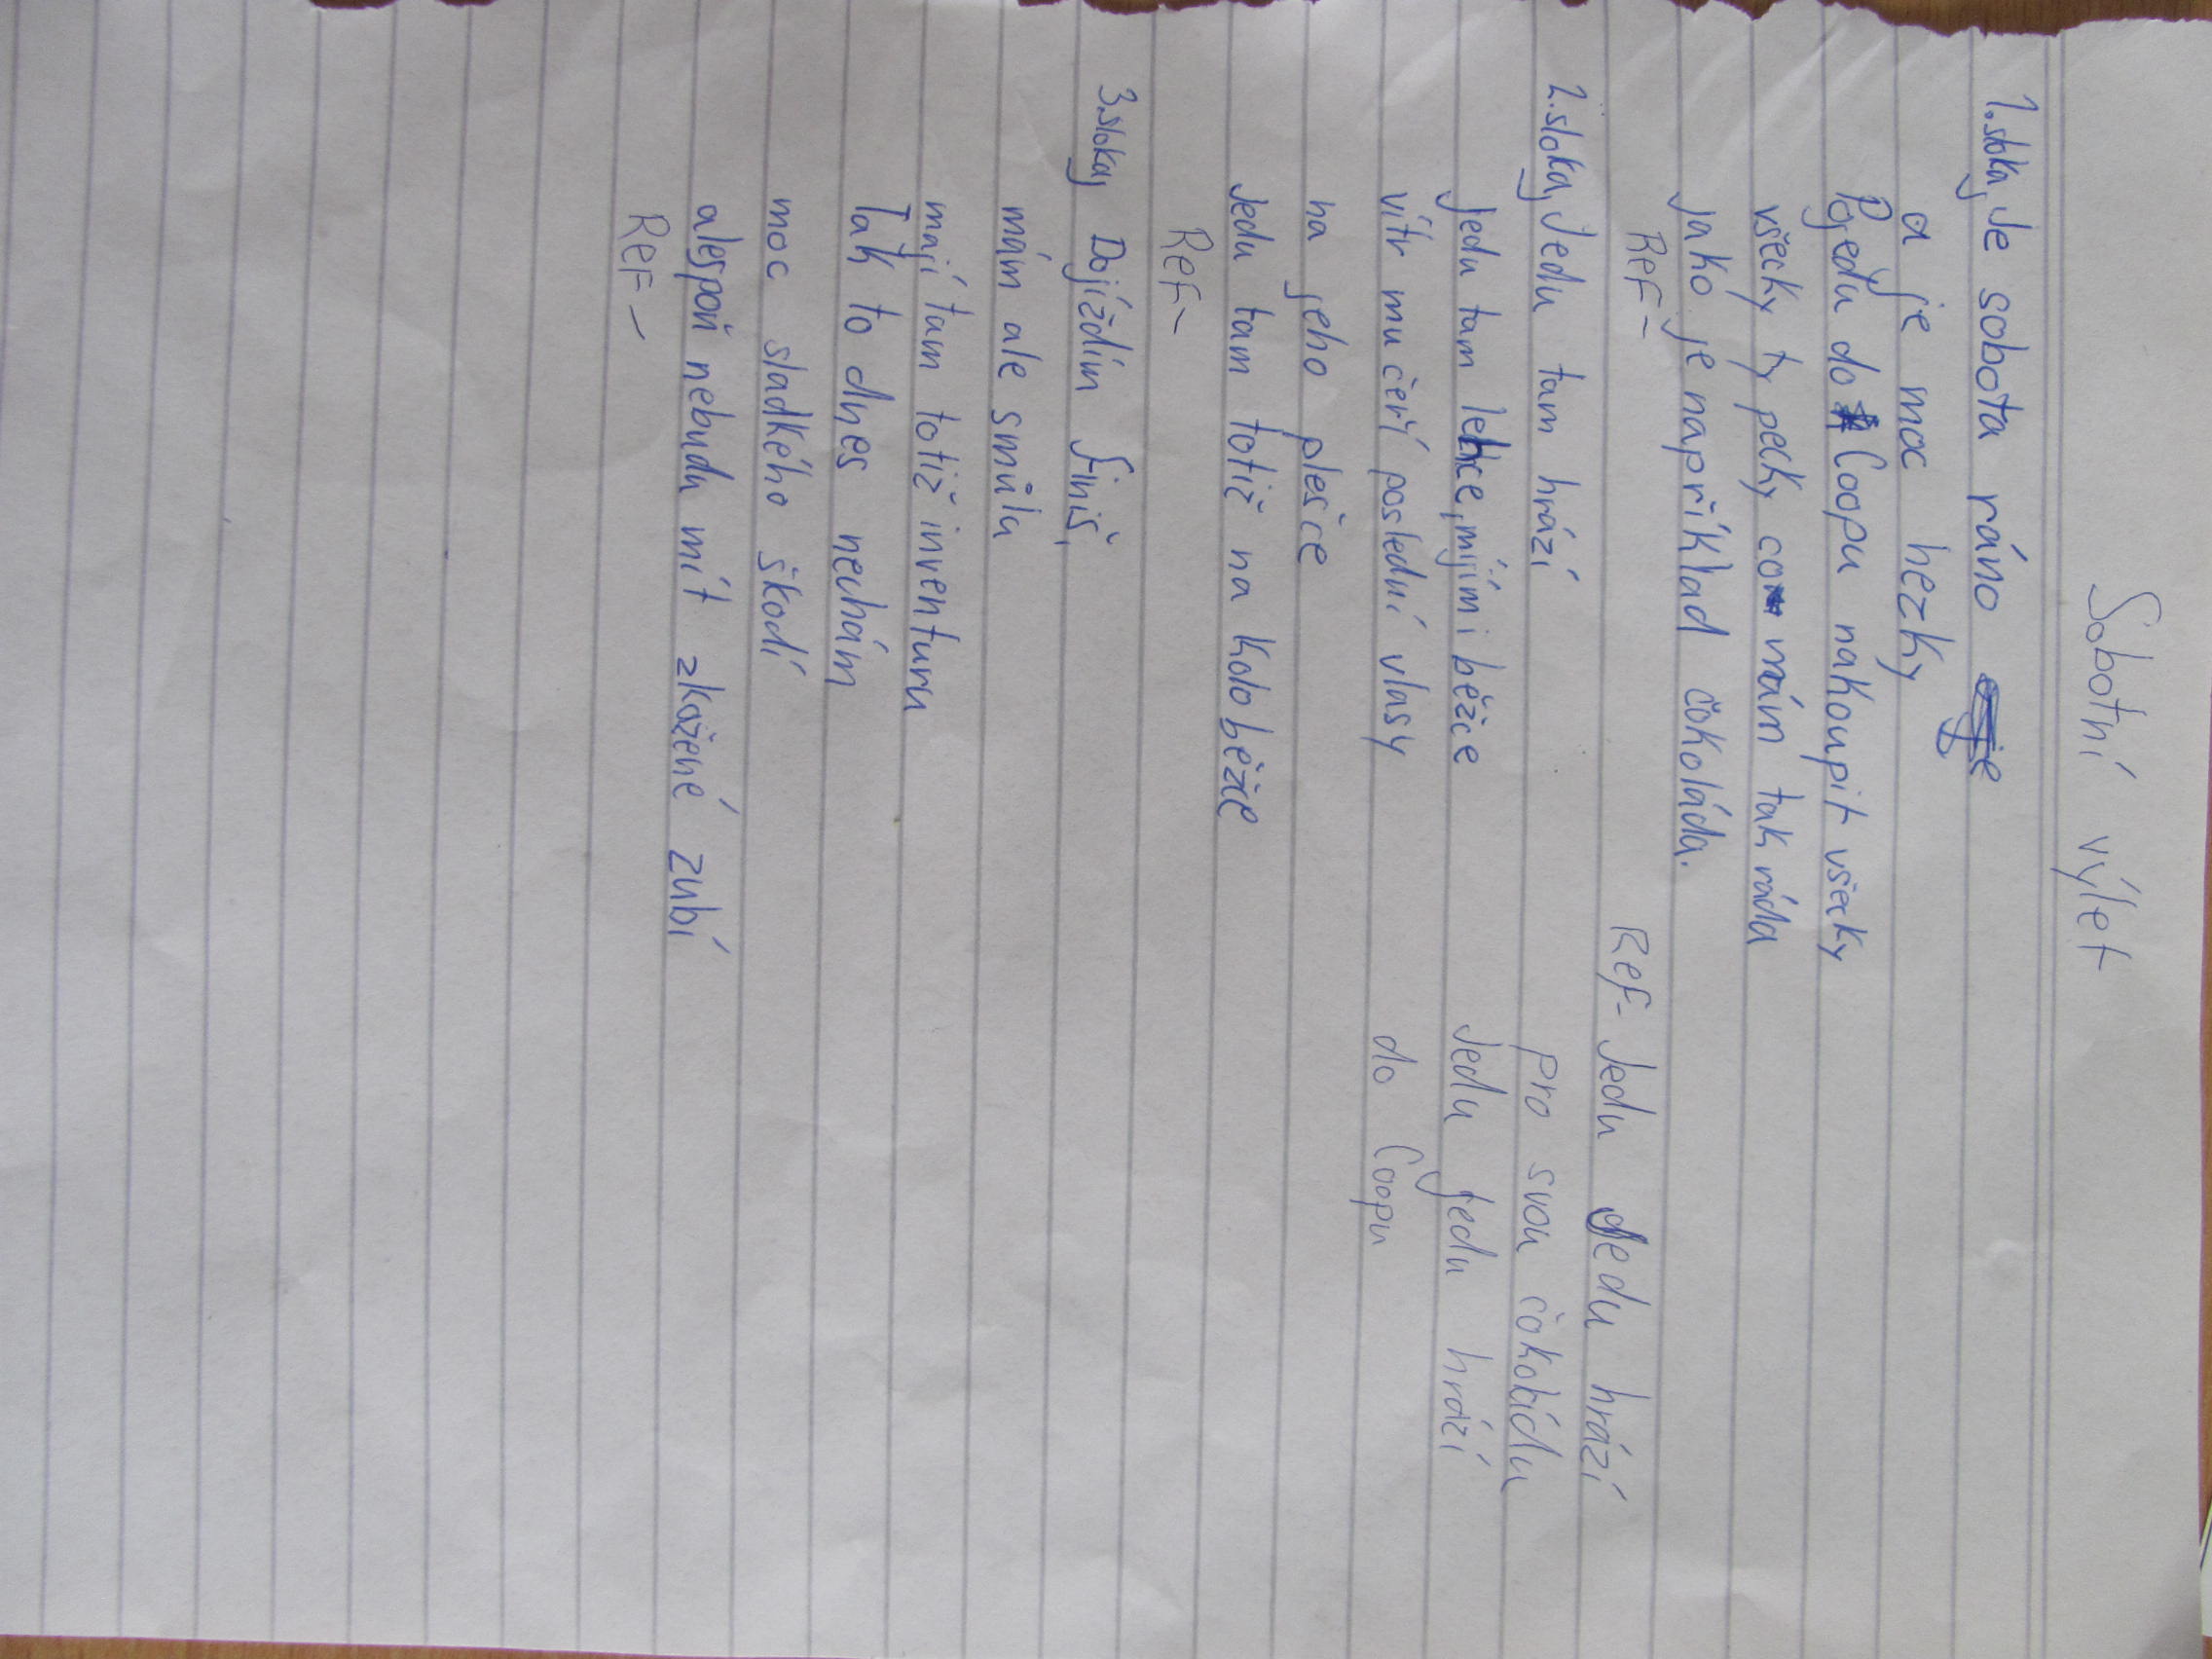 Sobotní výlet
1. sloka, Je sobota ráno
a je moc hezky
Pojedu do Coopu nakoupit všecky
všecky ty pecky co mám tak ráda
jako je například čokoláda.
Ref-
2. sloka, Jedu tam hrází
jedu tam lehce, míjím i běžce
vítr mu čeří poslední vlasy
na jeho plešce
Jedu tam totiž na koloběžce
Ref-
3. sloka, Dojíždím finiš,
mám ale smůlu
mají tam totiž inventuru
Tak to dnes nechám
moc sladkého škodí
alespoň nebudu mít zkažené zubí
Ref-
Ref- Jedu Jedu hrází
pro svou čokoládu
Jedu jedu hrází
do Coopu